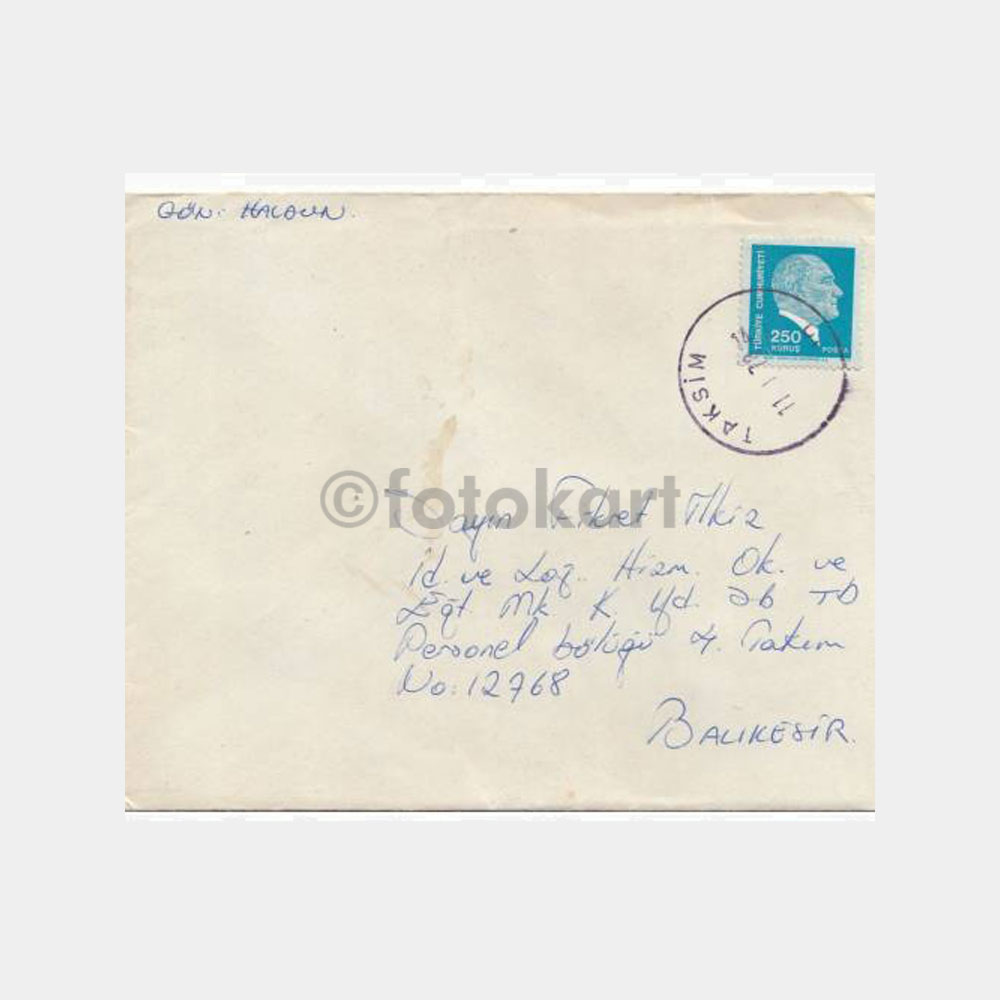 GÖN: HALDUN.
TÜRKİYE CUMHURİYETİ
250
KURUŞ
POSTA
TAKSİM
©fotokart
Sayın Fikret İlkiz
İd. ve Loj. Hizm. Ok. ve
Eğt Mk. K Yd. Sb TB
Personel bölüğü 4. Takım
No: 12768
BALIKESİR.